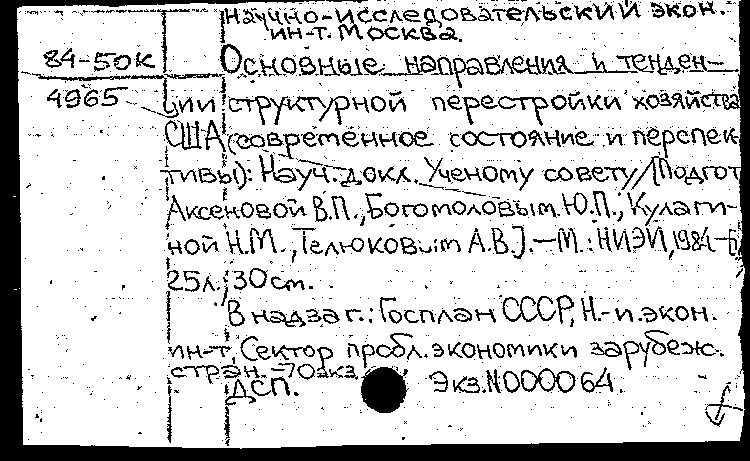 Научно-исследовательский экон.
ин-т. Москва.
84-50к
Основные направления и тенден-
4965
ции структурной перестройки хозяйства
США (современное состояние и перспек
тивы): Науч. докл. Ученому совету/[Подгот
Аксеновой В.П., Богомоловым Ю.П., Кулаги-
ной Н.М., Телюковым А.В.].-М.: НИЭИ, 1984-
25л.; 30см.
В надзаг.: Госплан СССР, Н.-и. экон.
ин-т, Сектор пробл. экономики зарубеж.
стран. -70экз
ДСП. Экз.N000064.